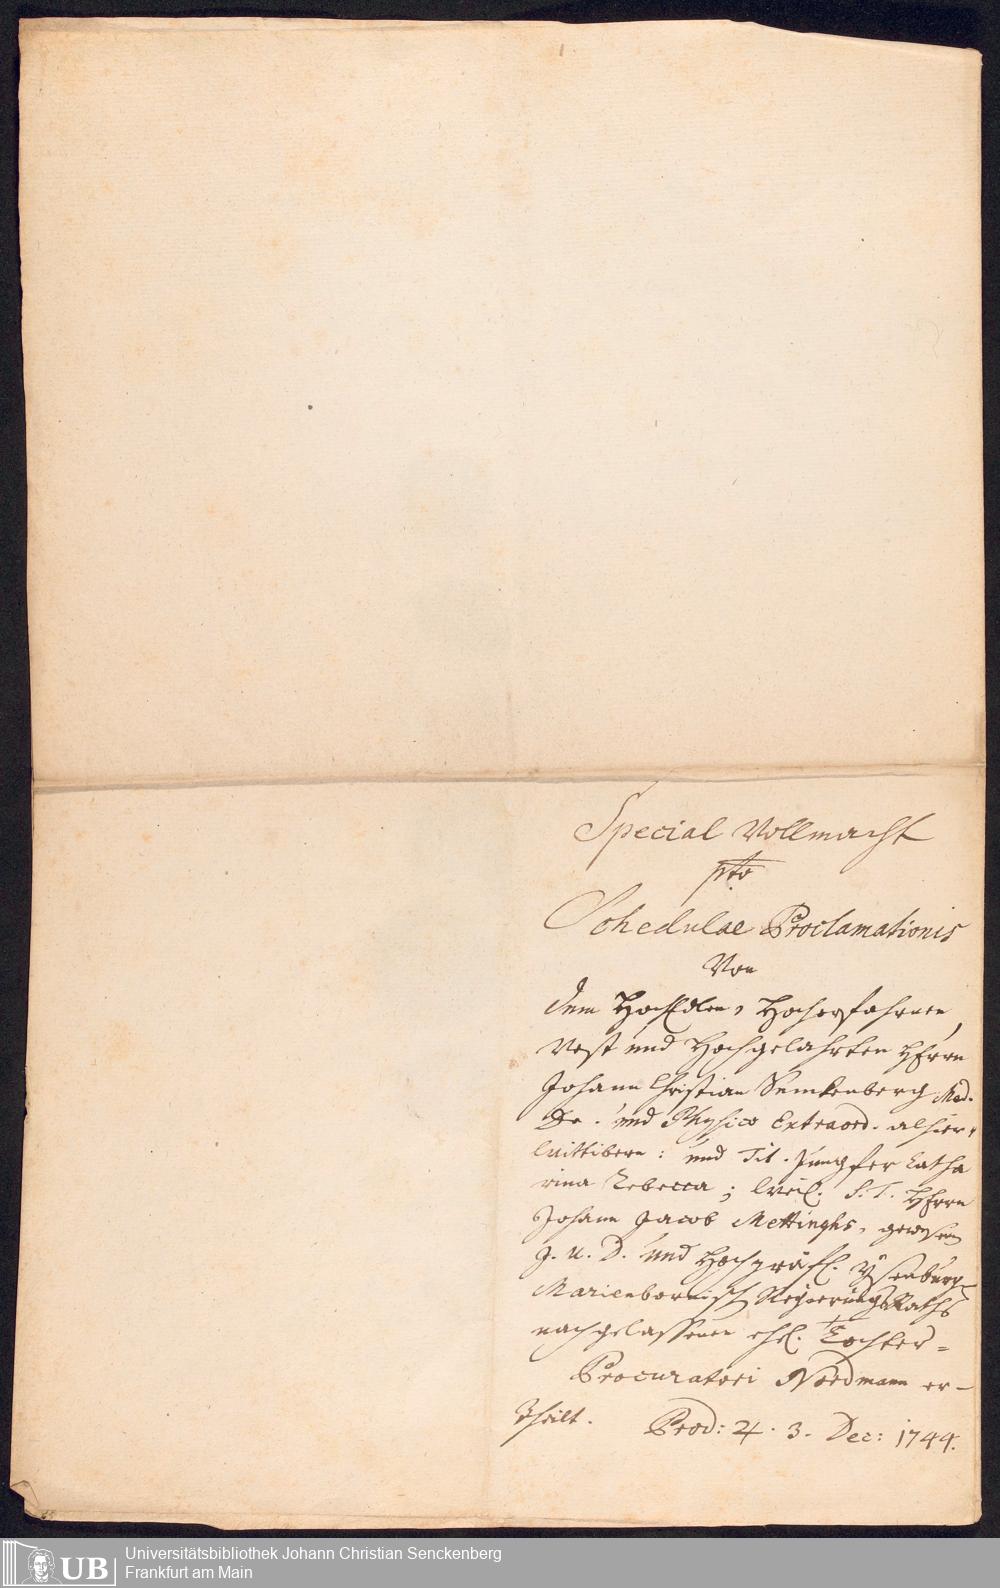 Special Vollmacht
pto
Schedulae Proclamationis
Von
dem HochEdlen, Hocherfahrnen,
Vest und Hochgelahrten Herrn
Johann Christian Senckenberg Med.
Dr. und Physico Extraord. alhier,
und Tit. Jungfer Catha
rina Rebecca; weil. S. T. Herrn
Johann Jacob Mettinghs, gewesenen
J. U. D. und Hochgräfl. Ysenburg
Marienbornisch Regierungs Raths
nachgelassenen ehel. Tochter =
Procuratori Nordmann er-
theilt.
Prod: 4. 3. Dec: 1744.
UB
Universitätsbibliothek Johann Christian Senckenberg
Frankfurt am Main